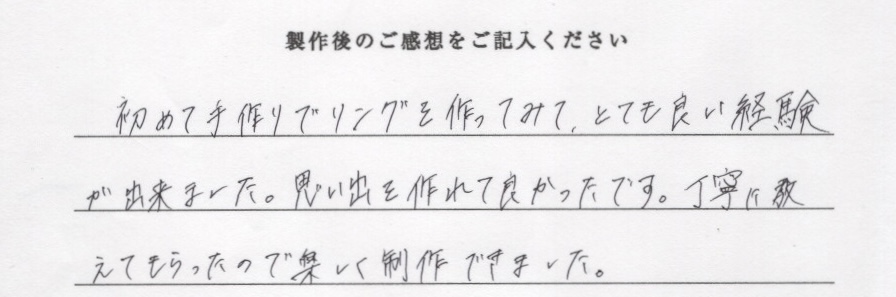 製作後のご感想をご記入ください
初めて手作りでリングを作ってみて、とても良い経験
が出来ました。思い出を作れて良かったです。丁寧に教
えてもらったので楽しく制作できました。